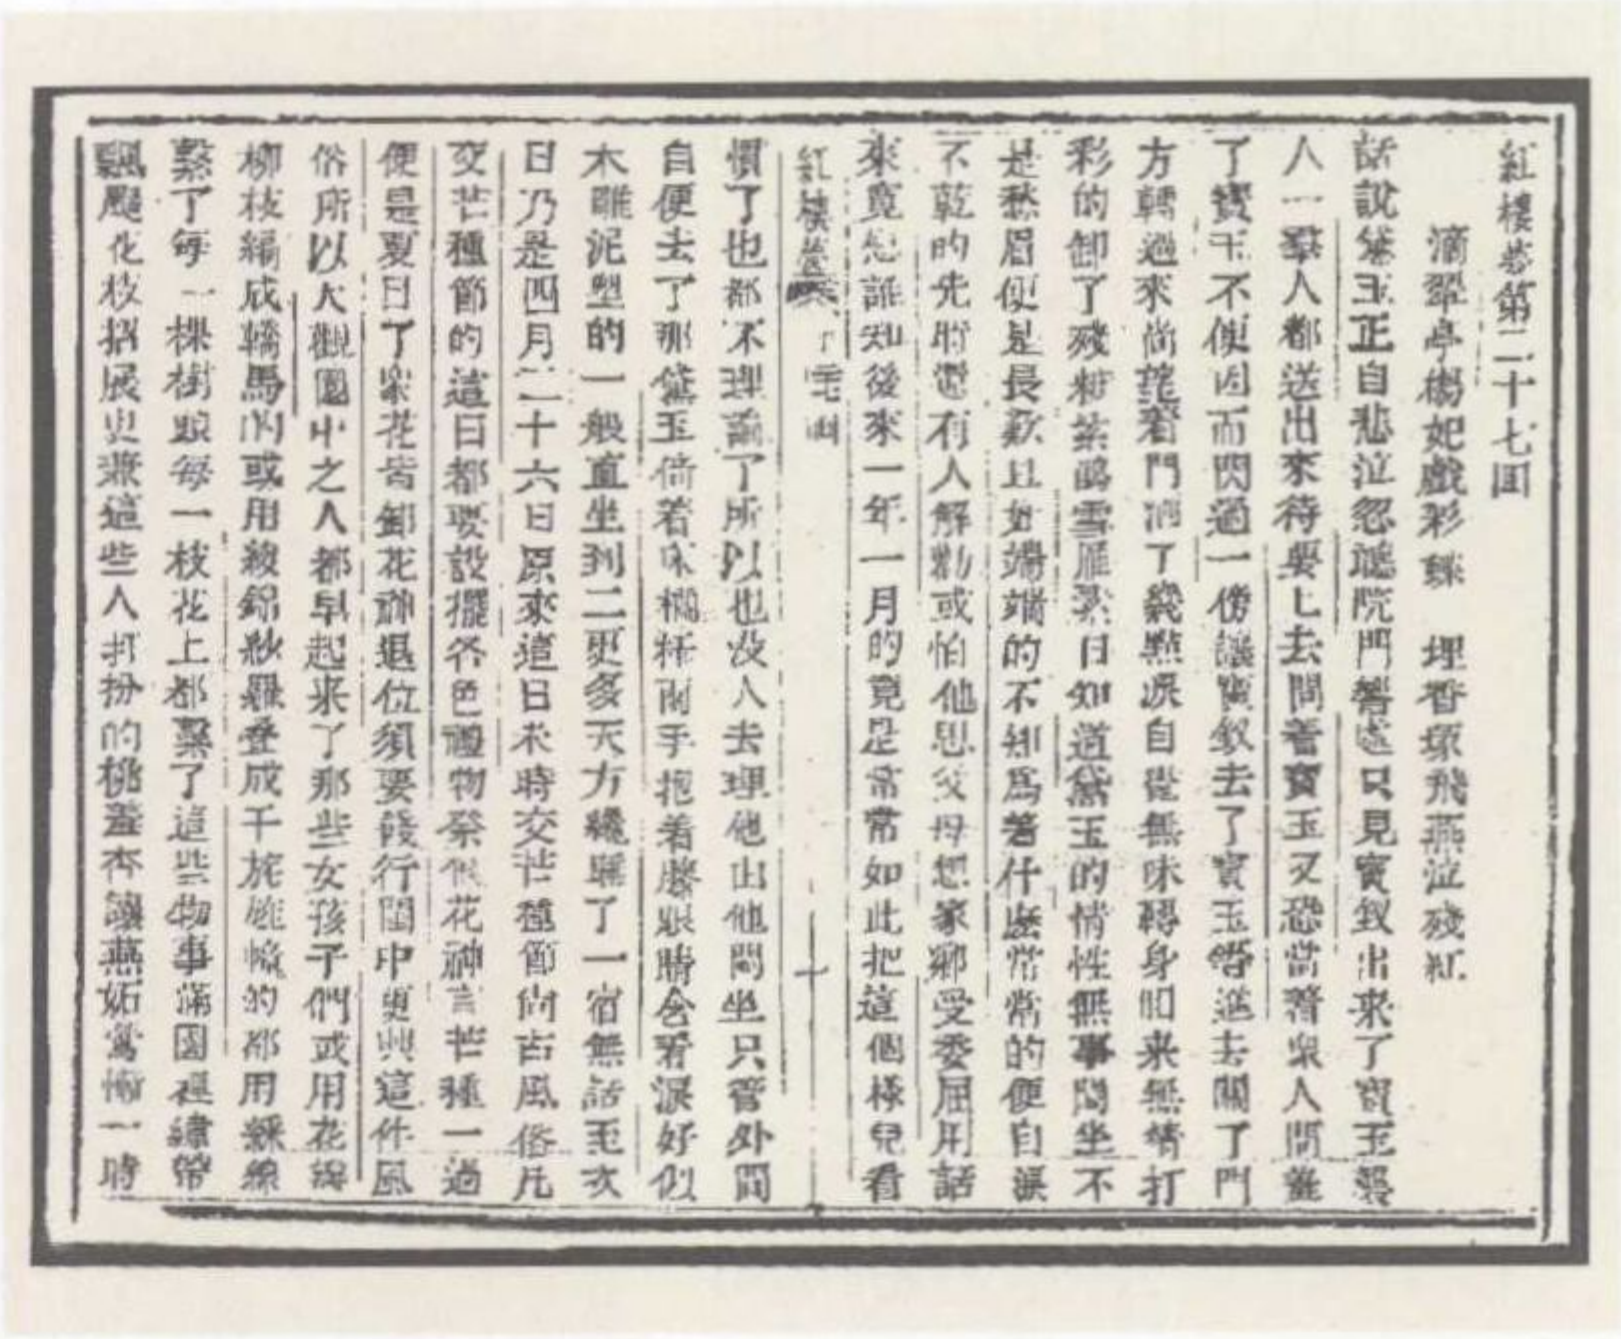 紅樓夢第二十七回
滴翠亭楊妃戲彩蝶　埋香塚飛燕泣殘紅
話說黛玉正自悲泣忽聽院門響處只見寶釵出來了寶玉襲
人一羣人都送出來待要上去問着寶玉又恐當着衆人問羞
了寶玉不便因而閃過一傍讓寶釵去了寶玉等進去關了門
方轉過來尚望着門洒了幾點淚自覺無味轉身回來無精打
彩的卸了殘粧紫鵑雪雁素日知道黛玉的情性無事悶坐不
是愁眉便是長歎且好端端的不知爲着什麽常常的便自淚
不乾的先時還有人解勸或怕他思父母想家鄉受委屈用話
來寬慰誰知後來一年一月的竟是常常如此把這個樣兒看
紅樓夢　第二十七回　一
慣了也都不理論了所以也没人去理他由他悶坐只管外間
自便去了那黛玉倚着床欄杆兩手抱着膝眼睛含着淚好似
木雕泥塑的一般直坐到二更多天方纔睡了一宿無話至次
日乃是四月二十六日原來這日未時交芒種節尚古風俗凡
交芒種節的這日都要設擺各色禮物祭餞花神言芒種一過
便是夏日了衆花皆卸花神退位須要餞行閨中更興這件風
俗所以大觀園中之人都早起来了那些女孩子們或用花瓣
柳枝編成轎馬的或用綾錦紗羅叠成千旄旌幢的都用綵線
繫了每一棵樹頭每一枝花上都繫了這些物事滿園裡繡帶
飄颻花枝招展更兼這些人打扮的桃羞杏讓燕妬鶯慚一時